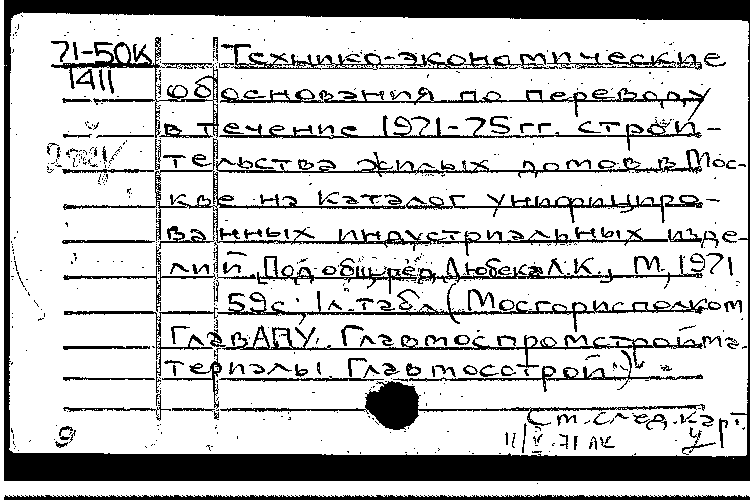 71-50К Технико-экономические
1411 обоснования по переводу
в течение 1971-75гг. строи-
2 экз
тельства жилых домов в Мос-
кве на каталог унифициро-
ванных индустриальных изде-
лий. Под общ. ред. Любека Л.К., М, 1971
59с; 1л.табл (Мосгорисполком
ГлавАПУ. Главмоспромстройма-
териалы. Главмосстрой)
См. след. карт.
9 11/V.71 АК